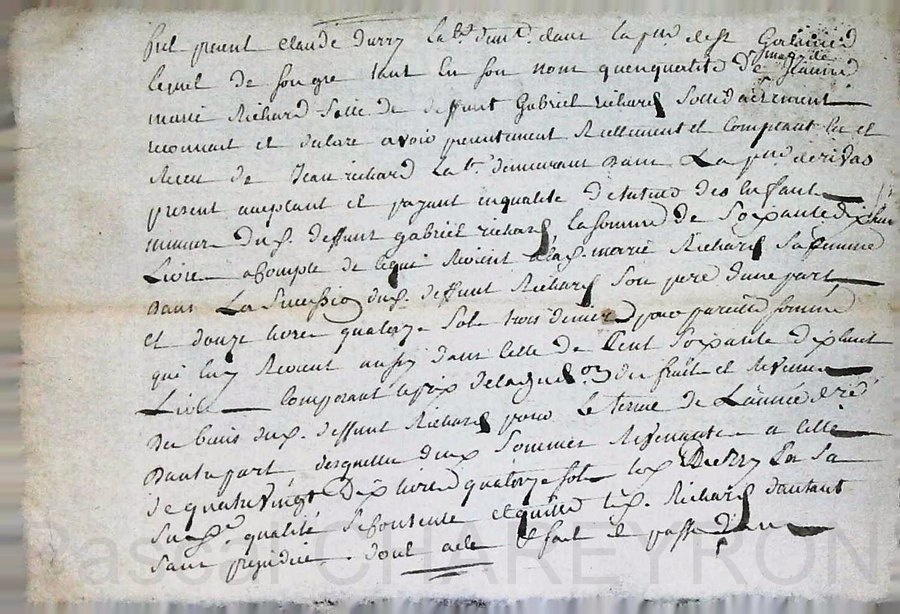 fut présent Claude Durry lab.r demt. dans la psse de St
lequel de son gré tant en son nom qu'en qualité de Jeanne
marie Richard fille de deffunt Gabriel richard solidairement
reconnait et declare avoir presentement Réellement et comptant eu et
Receu de Jean richard Lab.r demeurant dans La psse de rivas
présent acceptant et payant en qualité de tuteur des Enfants
mineurs dud. deffunt gabriel richard, la somme de soixante dix huit
Livres acompte de ce qui Revient a lad. marie Richard sa femme
dans La Succession dud. deffunt Richard son pere d'une part
et douze livres quatorze sols trois deniers pour pareille somme
qui luy Revient aussy dans celle de Cent soixante dix huit
Livres composant le prix de la des fruits et Revenus
des biens dud. deffunt Richard pour le terme de L'année
D'autre part, desquelles deux sommes Revenantes a celle
de quatre vingt dix livres quatorze sols led. Durry En sa
susd. qualité se contente et quitte led. Richard d'autant
sans préjudice. dont acte fait et passé
Pascal CHAREYRON